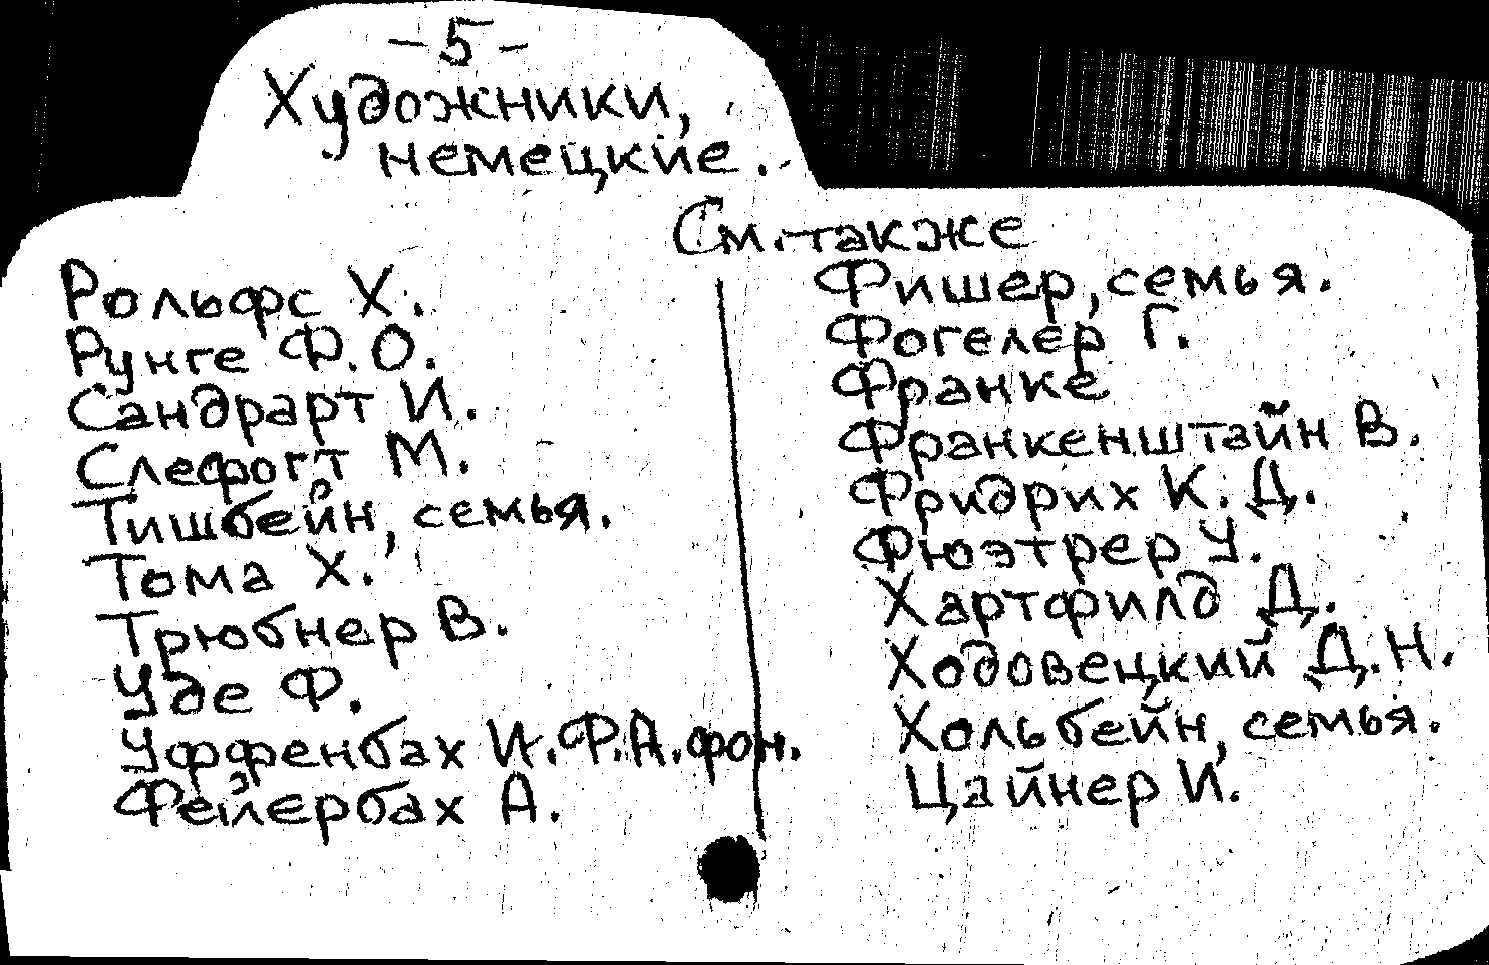 -5-
Художники,
немецкие.
См. также
Рольфс Х.
Рунге Ф.О.
Сандрарт И.
Слефогт М.
Тишбейн, семья.
Тома Х.
Трюбнер В.
Уде Ф.
Уффенбах И.Ф.А.фон.
Фейербах А.
Фишер, семья.
Фогелер Г.
Франке
Франкенштайн В.
Фридрих К. Д.
Фюэтрер У.
Хартфилд Д.
Ходовецкий Д.Н.
Хольбейн, семья.
Цайнер И.